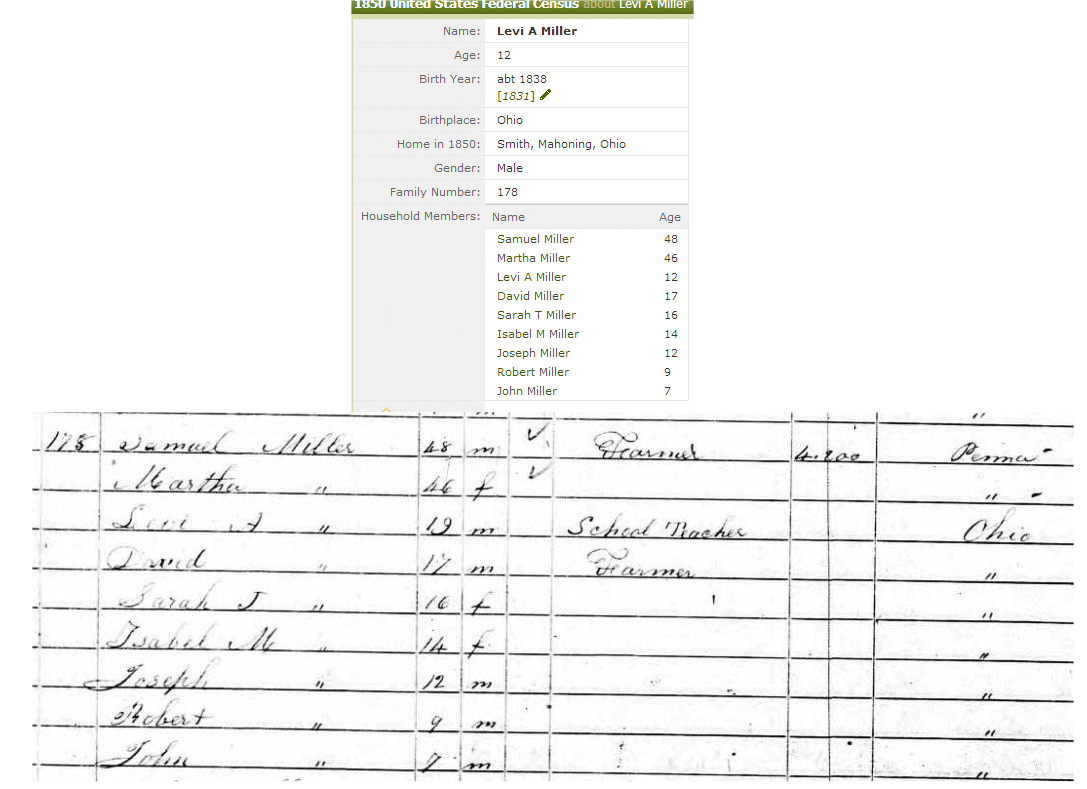 1850 United States Federal Census about Levi A Miller
Name: Levi A Miller
Age: 12
Birth Year: abt 1838
[1831]
Birthplace: Ohio
Home in 1850: Smith, Mahoning, Ohio
Gender: Male
Family Number: 178
Household Members: Name Age
Samuel Miller 48
Martha Miller 46
Levi A Miller 12
David Miller 17
Sarah T Miller 16
Isabel M Miller 14
Joseph Miller 12
Robert Miller 9
John Miller 7
"
178 Samuel Miller 48 m Farmer Penna
Martha " 46 f "
Levi A " 19 m School Teacher Ohio
David " 17 m Farmer "
Sarah J " 16 f "
Isabel M " 14 f "
Joseph " 12 m "
Robert " 9 m "
John " 7 m "